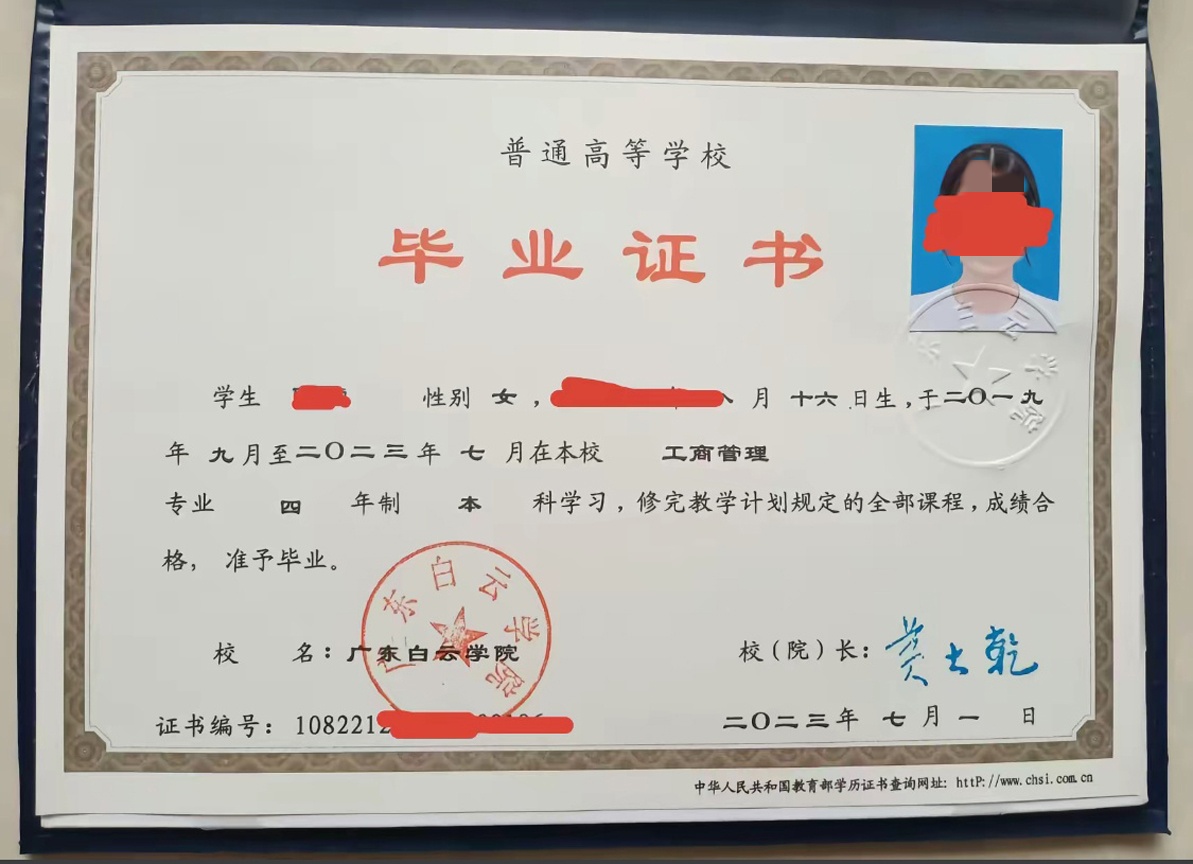 普通高等学校
毕业证书
学生 性别 女, 月 十六 日生,于二〇一九
年 九 月至二〇二三年 七 月在本校 工商管理
专业 四 年制 本 科学习,修完教学计划规定的全部课程,成绩合
格, 准予毕业。
广东白云学院
校 名:广东白云学院
校(院)长:
证书编号: 1082212
二〇二三年 七 月 一 日
中华人民共和国教育部学历证书查询网址: httP://www.chsi.com.cn
白云学